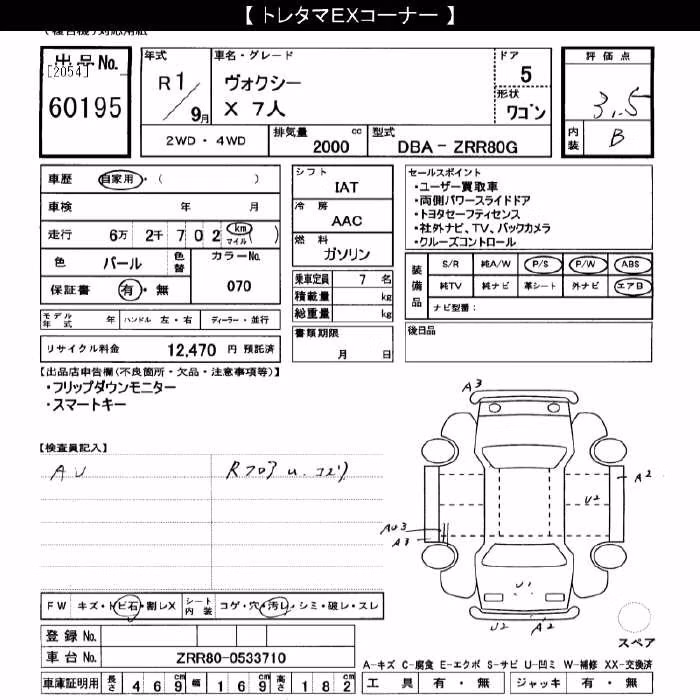 【 トレタマEXコーナー 】
出品No. 年式 車名・グレード ドア 評価点
[2054] R1/9月 ヴォクシー 5 3.5
60195 X 7人 形状 ワゴン 内装 B
2WD・4WD 排気量 2000 cc 型式 DBA - ZRR80G
車歴 自家用・( )
車検 年 月
走行 6万 2千 7 0 2 km マイル )
色 パール 色替 カラーNo.
保証書 有・無 070
モデル年式 年 ハンドル 左・右 ディーラー・並行
リサイクル料金 12,470 円 預託済
シフト IAT
冷房 AAC
燃料 ガソリン
乗車定員 7 名
積載量 kg
総重量 kg
書類期限
月 日
セールスポイント
・ユーザー買取車
・両側パワースライドドア
・トヨタセーフティセンス
・社外ナビ、TV、バックカメラ
・クルーズコントロール
装備品 S/R 純A/W P/S P/W ABS
純TV 純ナビ 革シート 外ナビ エアB
ナビ型番:
後日品
【出品店申告欄(不良箇所・欠品・注意事項等)】
・フリップダウンモニター
・スマートキー
【検査員記入】
AU Rフロア u.コゲ
A3
A2
U2
AU3
A3
U1
U2 A2
スペア
FW キズ・トビ石・割レX シート内装 コゲ・穴・汚レ・シミ・破レ・スレ
登録No.
車台No. ZRR80-0533710
車庫証明用 長さ 4 6 9 cm 幅 1 6 9 cm 高さ 1 8 2 cm
A-キズ C-腐食 E-エクボ S-サビ U-凹ミ W-補修 XX-交換済
工具 有・無 ジャッキ 有・無